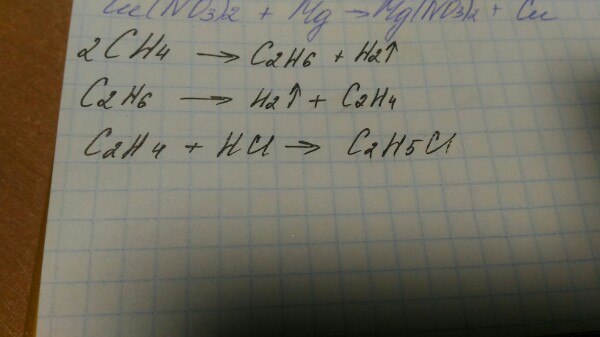 Cu(NO3)2 + Mg → Mg(NO3)2 + Cu
2CH4 → C2H6 + H2↑
C2H6 → H2↑ + C2H4
C2H4 + HCl → C2H5Cl